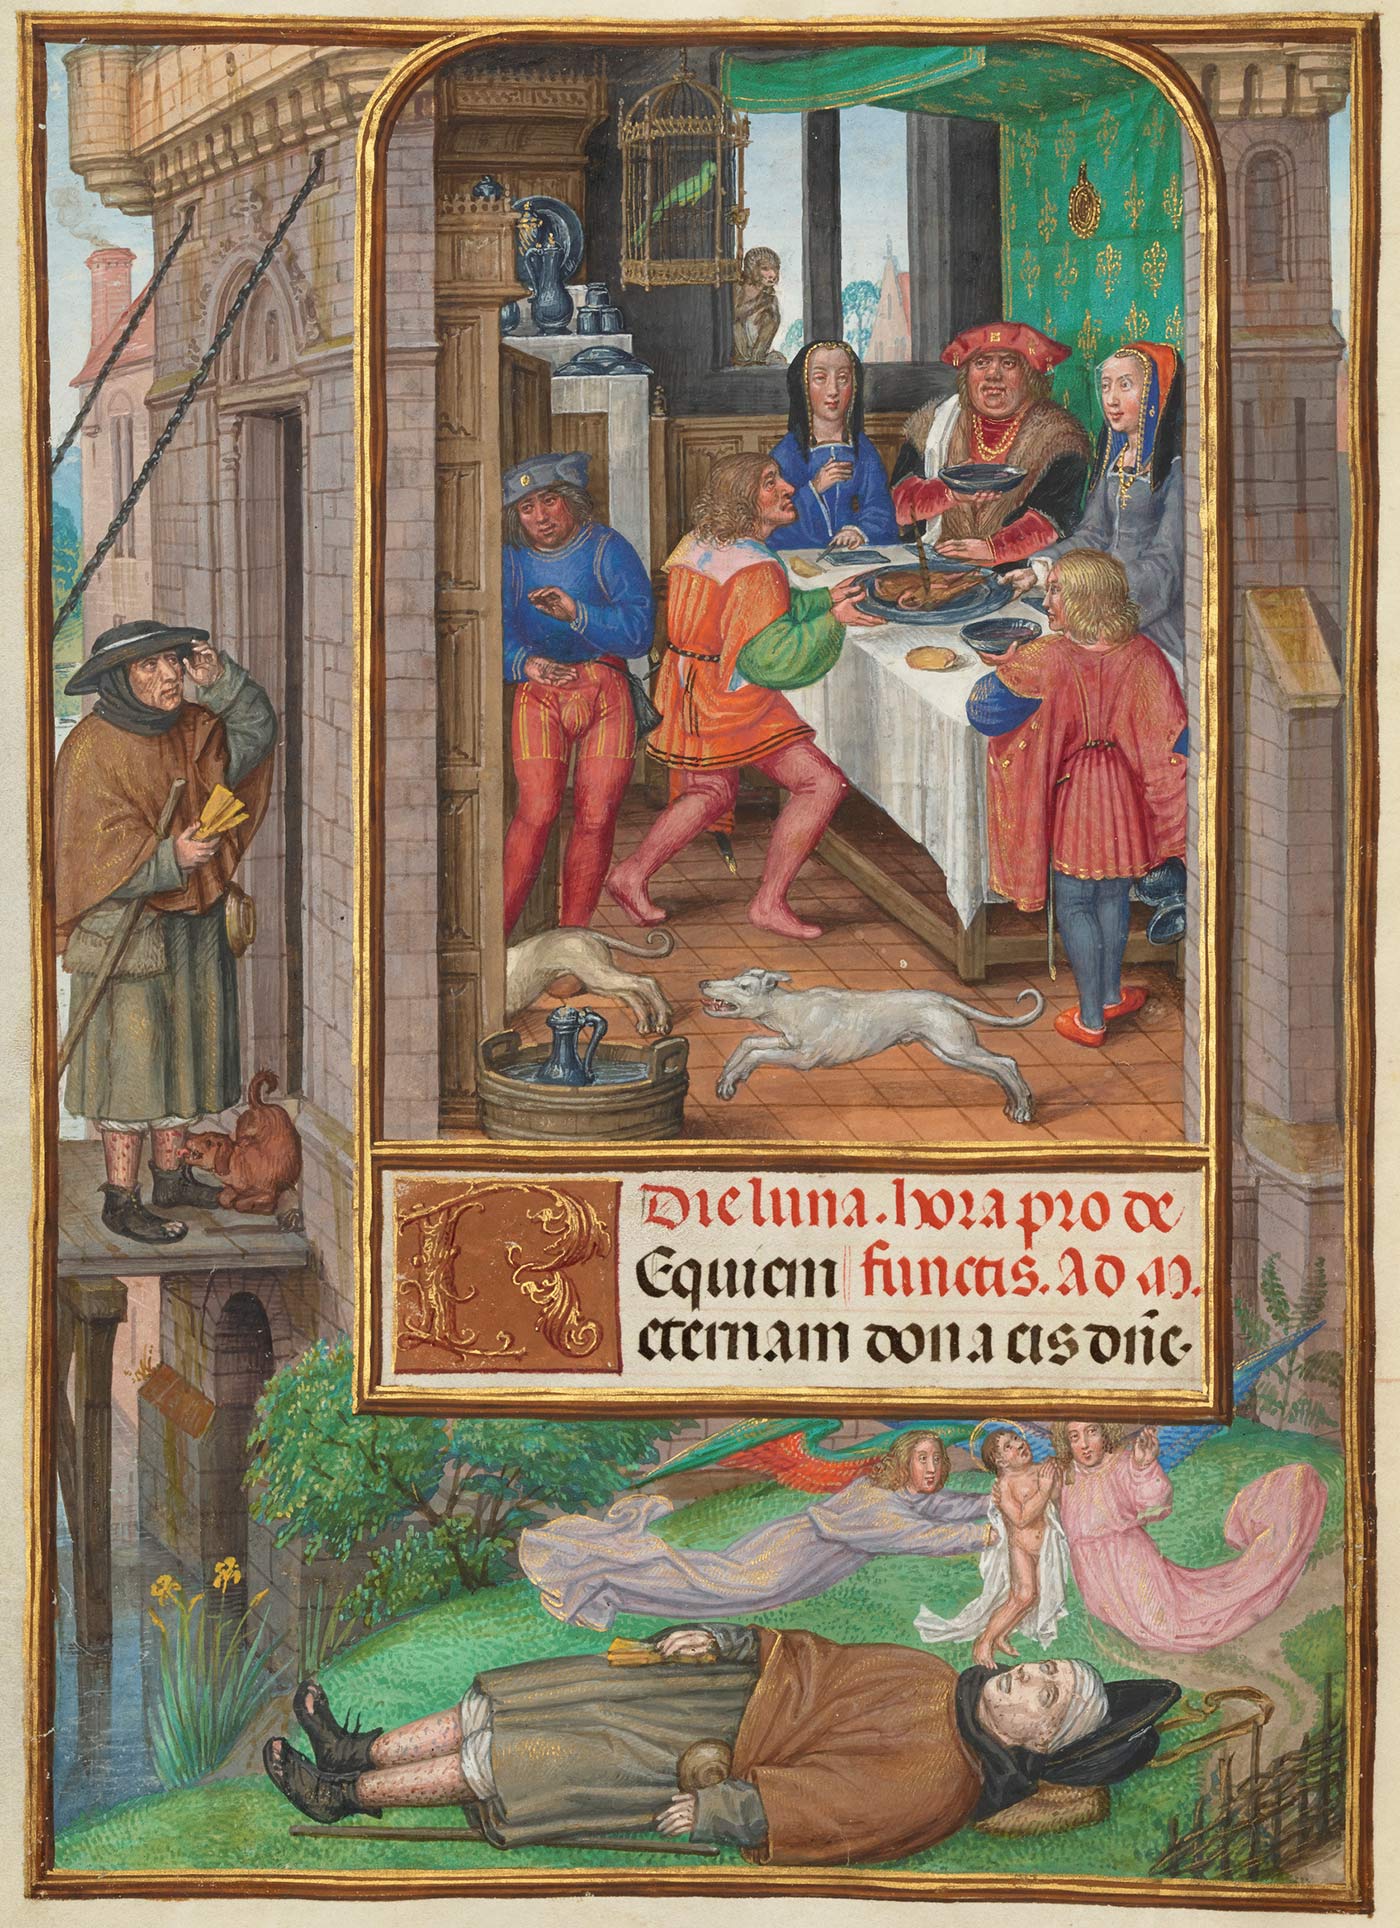 Die luna. hora pro de
Requiem functis. Ad M.
eternam dona eis dñe.